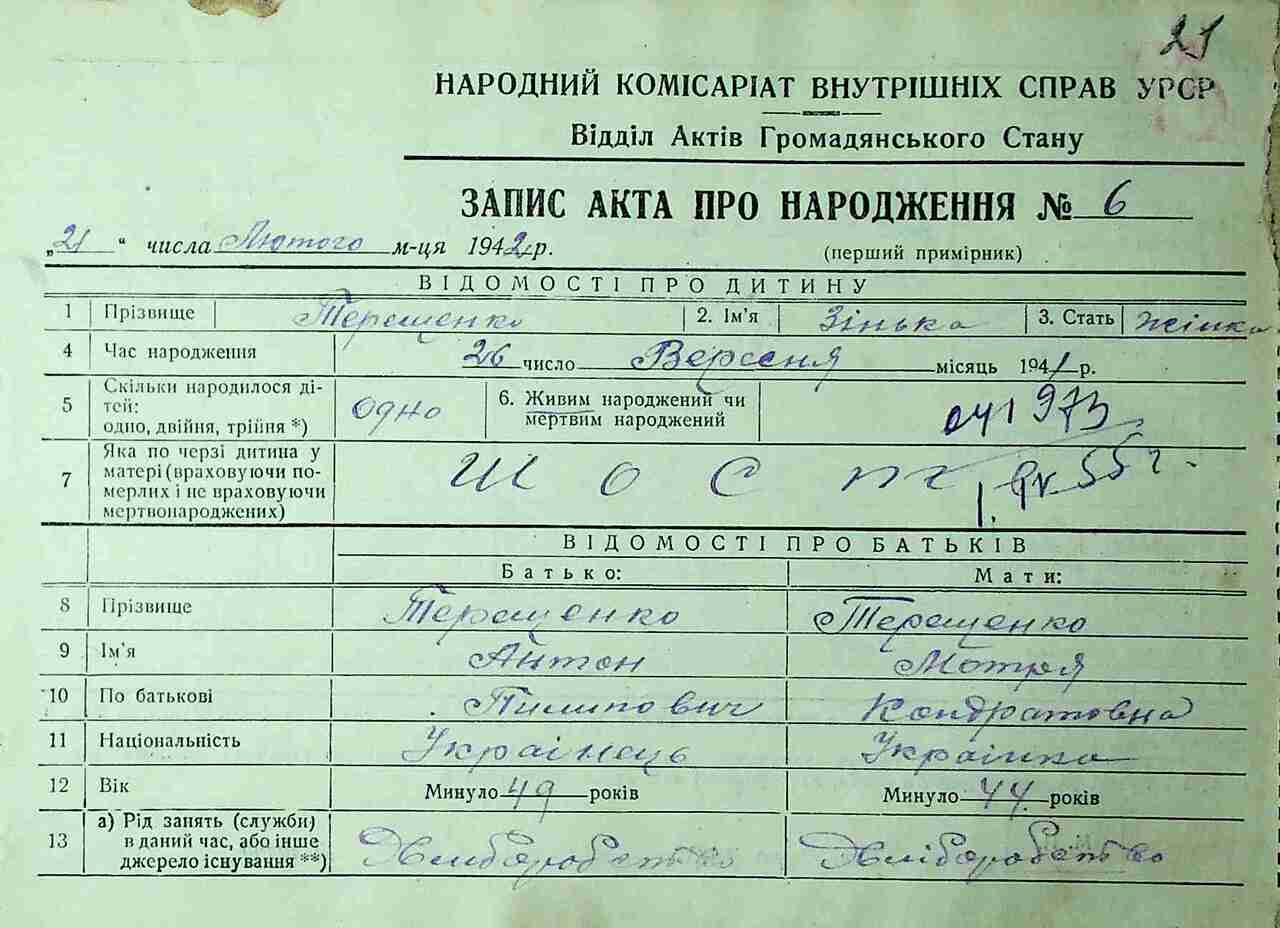 21
НАРОДНИЙ КОМІСАРІАТ ВНУТРІШНІХ СПРАВ УРСР
Відділ Актів Громадянського Стану
ЗАПИС АКТА ПРО НАРОДЖЕННЯ № 6
„21“ числа Лютого м-ця 1942 р. (перший примірник)
ВІДОМОСТІ ПРО ДИТИНУ
1 Прізвище Терещенко 2. Ім'я Зінька 3. Стать жінка
4 Час народження 26 число Вересня місяць 1941 р.
5 Скільки народилося ді-
тей:
одно, двійня, трійня *) одно 6. Живим народжений чи
мертвим народжений
973
7 Яка по черзі дитина у
матері (враховуючи по-
мерлих і не враховуючи
мертвонароджених) Шост 55 г.
ВІДОМОСТІ ПРО БАТЬКІВ
Батько: Мати:
8 Прізвище Терещенко Терещенко
9 Ім'я Антон Мотря
10 По батькові Пилипович Кондратовна
11 Національність Українець Українка
12 Вік Минуло 49 років Минуло 44 років
13 а) Рід занять (служби)
в даний час, або інше
джерело існування **) Хлиборобство Хліборобство